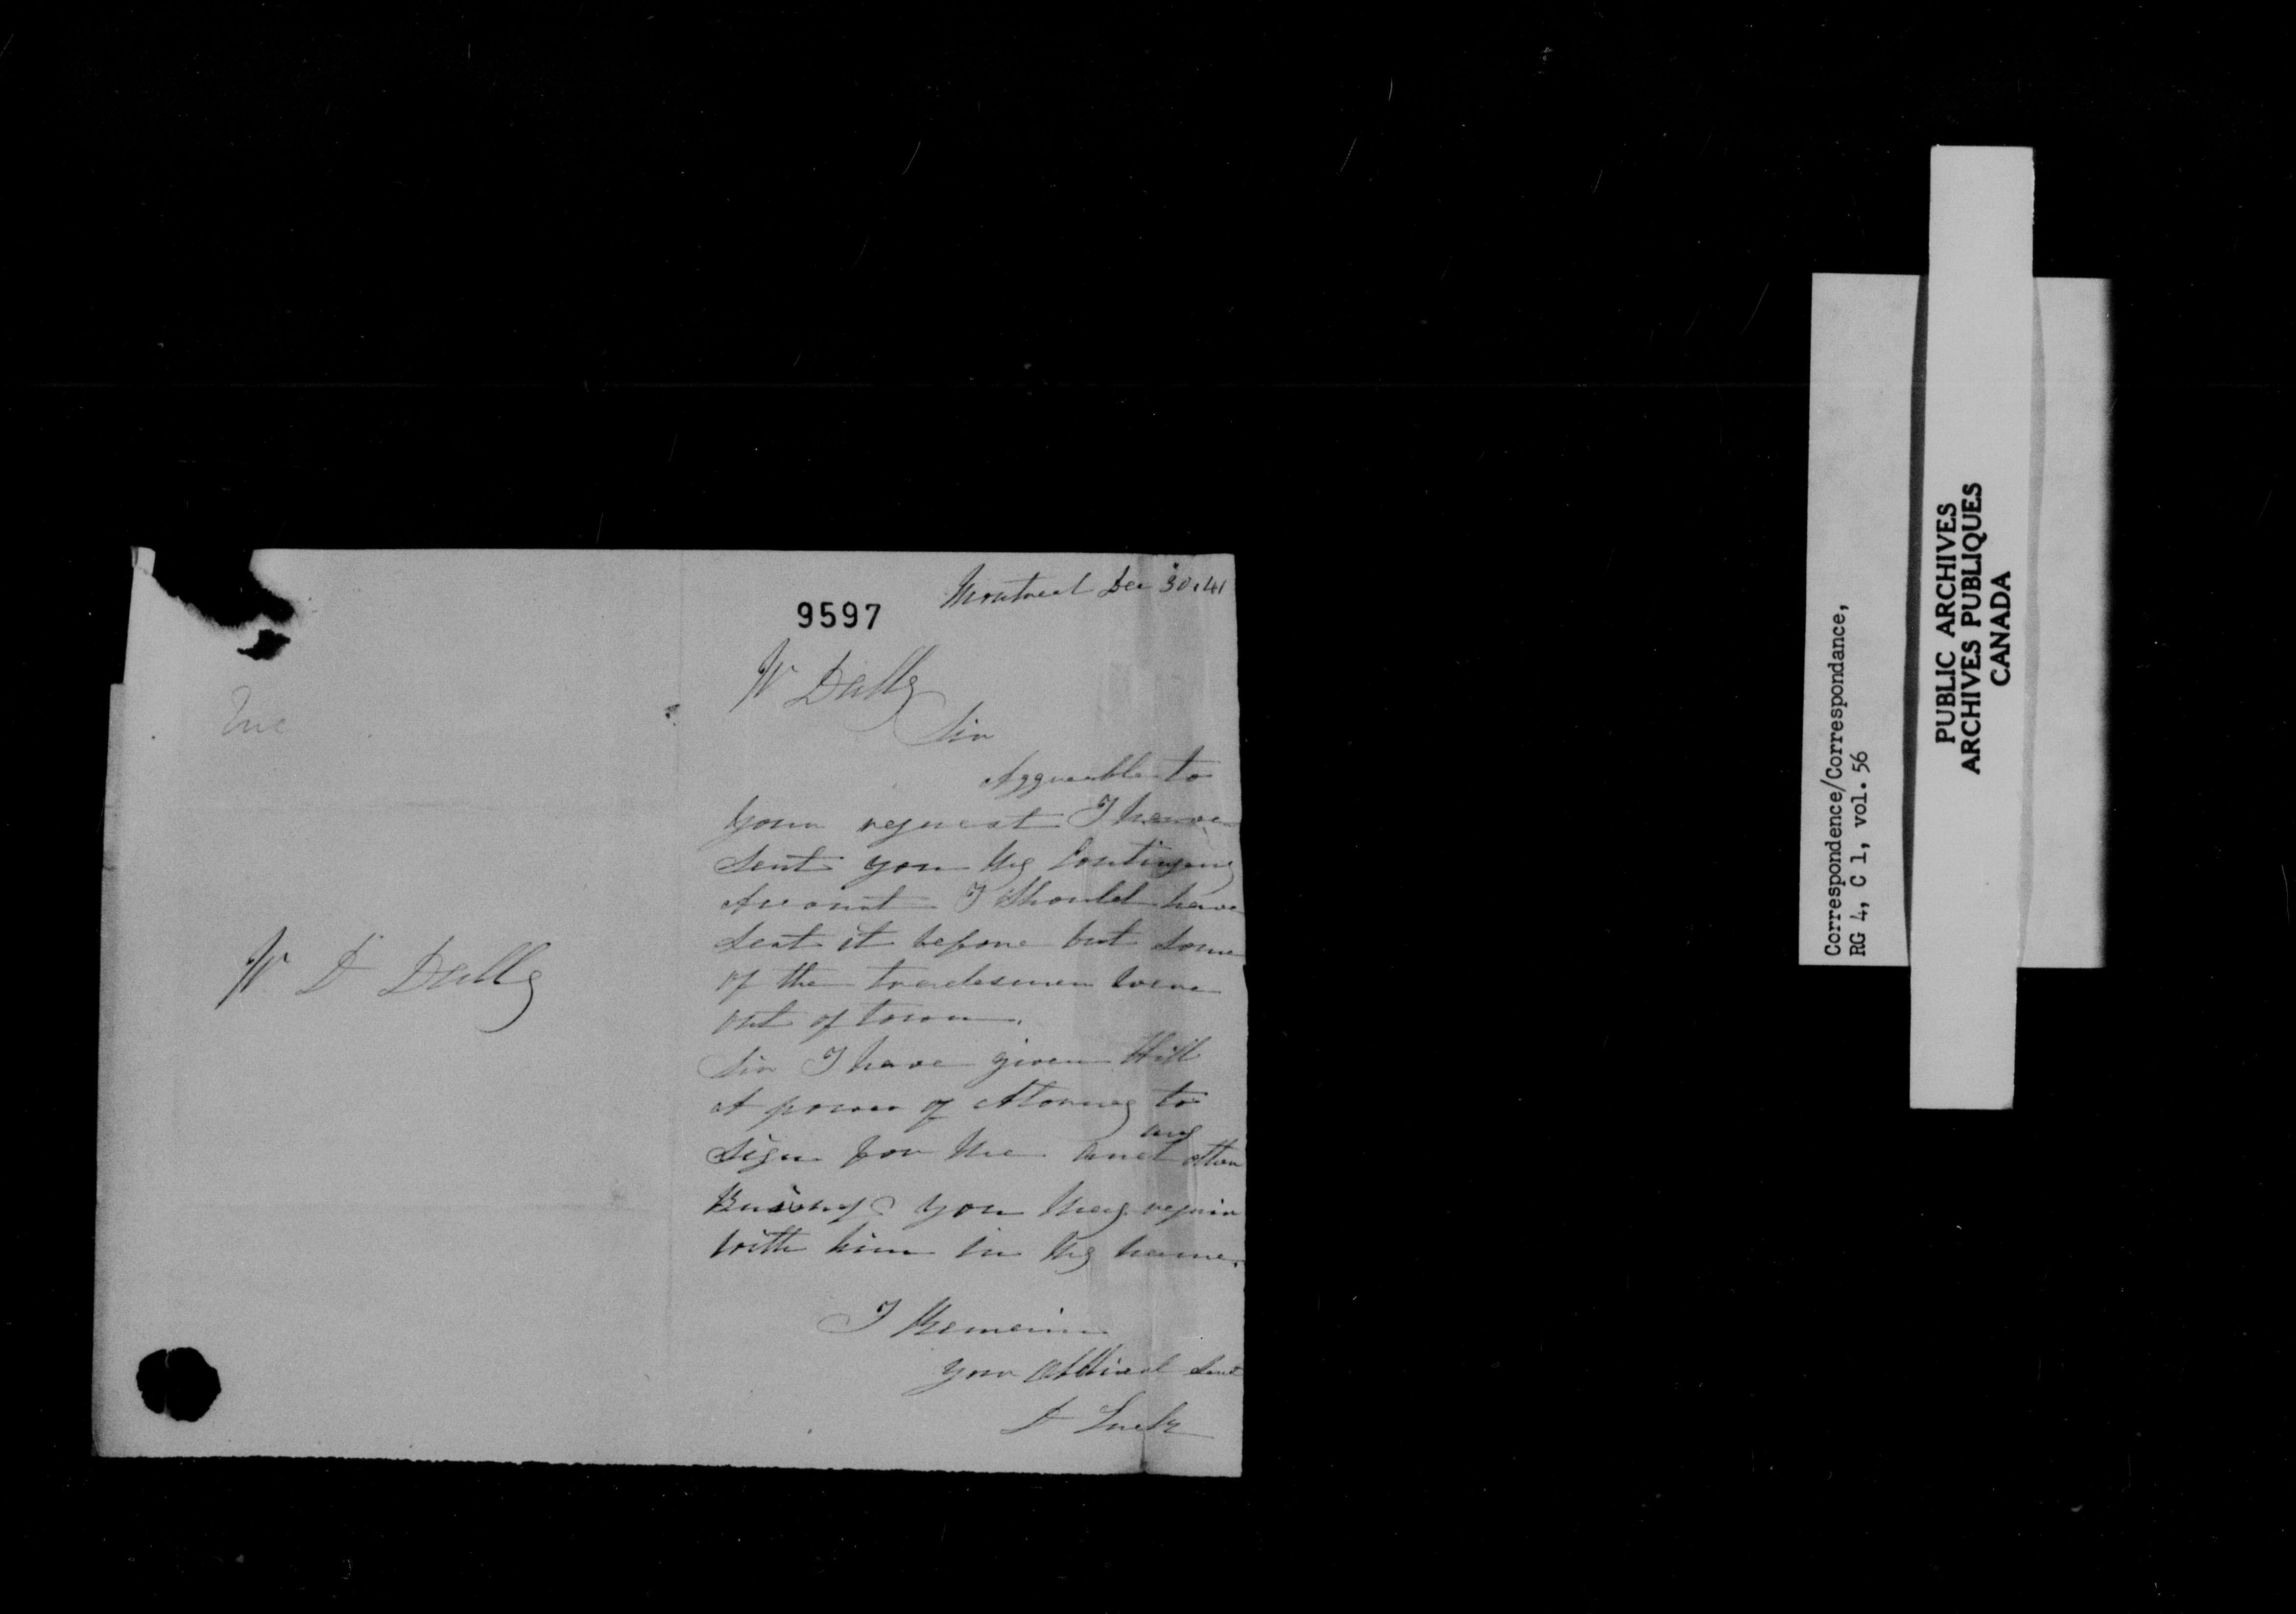 Montreal Dec 30. 41
9597
W Dally
Sir
Aggreeable to
your request I have
sent you My Contingeng
Account I Should have
sent it before but some
of the tradesmen were
out of town.
Sir I have given Will
A power of Atorney to
any
Sign for Me and other
you May requir
with him in My name.
I Remain
your
W D Dally
Correspondence/Correspondance,
RG 4, C 1, vol. 56
PUBLIC ARCHIVES
ARCHIVES PUBLIQUES
CANADA